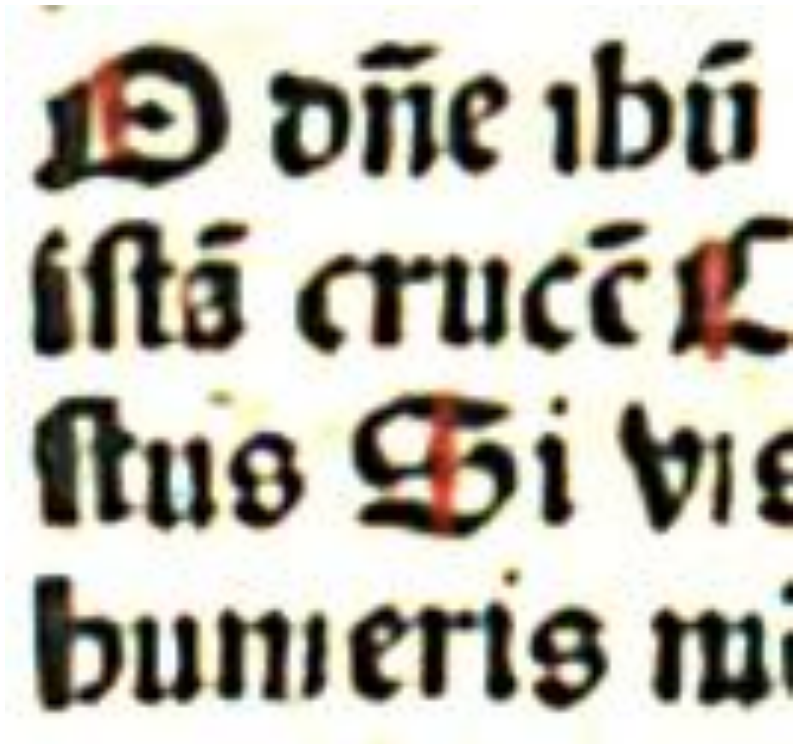 O dñe ihū
istā crucē
stus Si vis
humeris